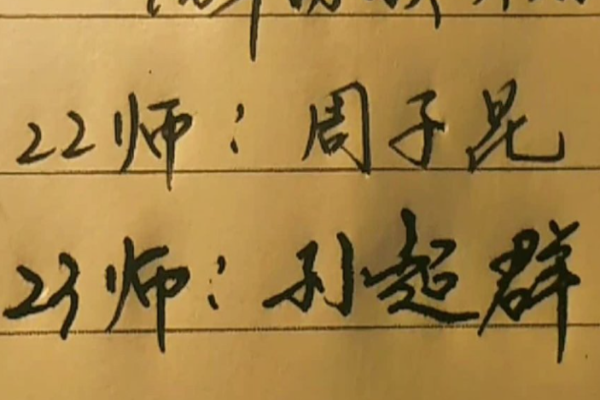 22师：周子昆
23师：孙超群